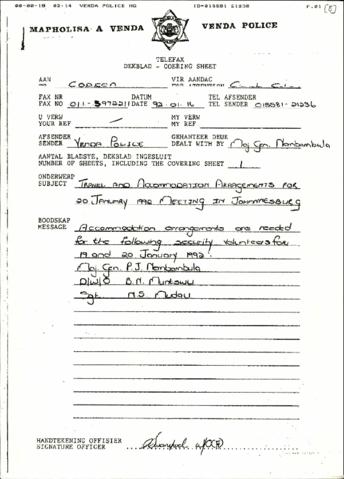 VENDA POLICE HQ
F.01
MAPHOLISA A VENDA VENDA POLICE
TELEFAX
DEKBLAD - COERING SHEET
AAN CODESA VIR AANDAG
FAX NR DATUM TEL AFSENDER
FAX NO 011-3972211 DATE 92.01.16 TEL SENDER 015581-21236
U VERW MY VERW
YOUR REF MY REF
AFSENDER GEHANTEER DEUR
SENDER VENDA POLICE DEALT WITH BY Maj Gen. Nambambula
AANTAL BLADSYE, DEKBLAD INGESLUIT
NUMBER OF SHEETS, INCLUDING THE COVERING SHEET 1
ONDERWERP
SUBJECT TRAVEL AND ACCOMMODATION ARRAGEMENTS FOR
20 JANUARY 1992 MEETING IN JOHANNESBURG
BOODSKAP
MESSAGE Accommodation arrangements are needed
for the following security volunteers for
19 and 20 January 1992.
Maj. Gen. P.J. Nambambula
D/W/O B.M. Muntswu
Sgt. M.S. Mudau
HANDTEKENING OFFISIER
SIGNATURE OFFICER